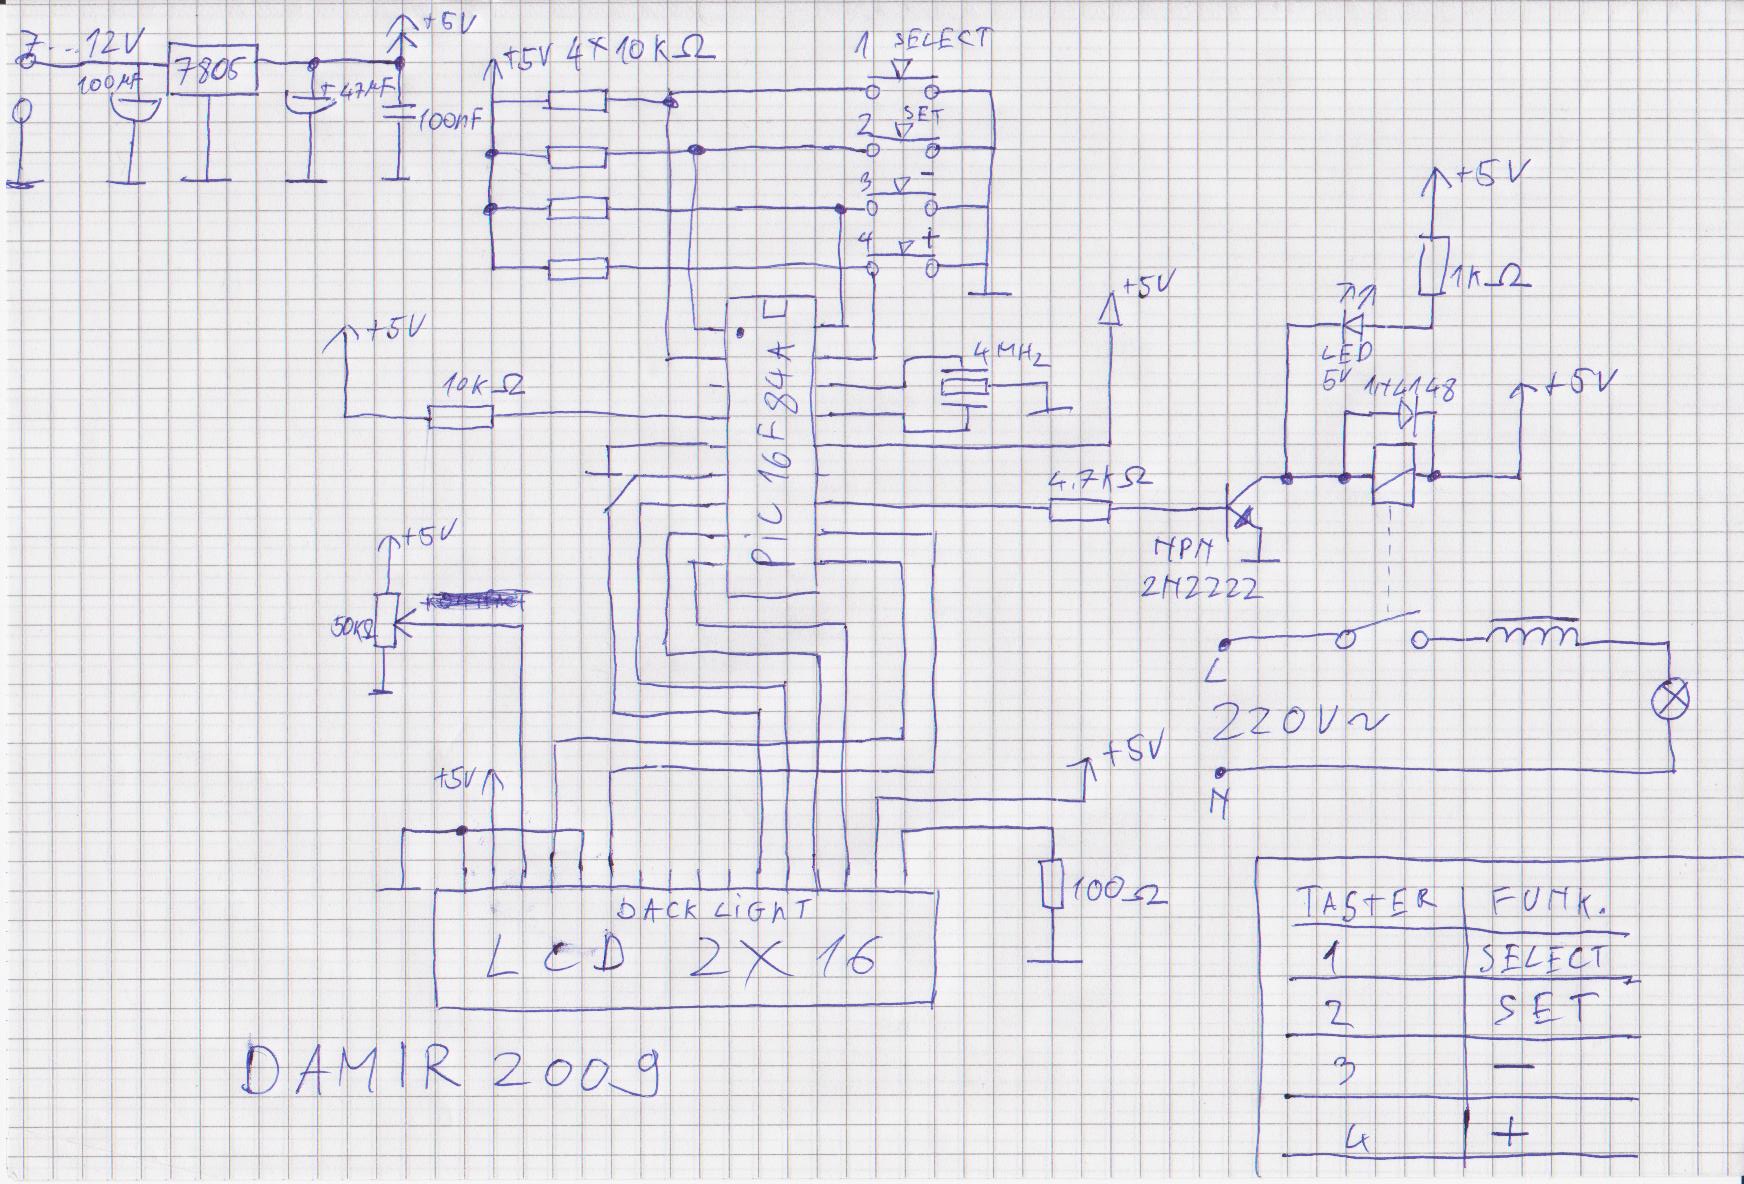 7...12V
7805
100µF
+47µF
100nF
+5V
+5V 4×10kΩ
1 SELECT
2 SET
3 -
4 +
+5V
10kΩ
PIC 16F84A
4MHz
+5V
+5V
1KΩ
LED
5V
1N4148
+5V
4.7KΩ
NPN
2N2222
+5V
50KΩ
L
220V~
N
+5V
+5V
100Ω
BACK LIGHT
LCD 2X16
DAMIR 2009
TASTER FUNK.
1 SELECT
2 SET
3 —
4 +